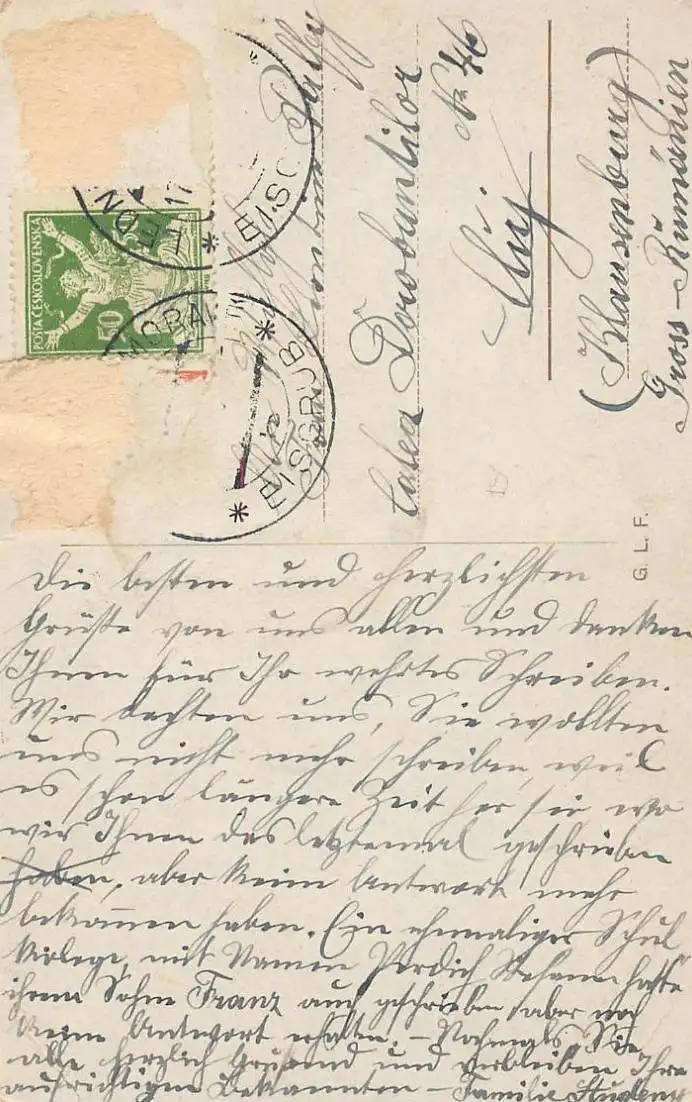 POŠTA ČESKOSLOVENSKÁ
50
BISGRUB
MORAV
G. L. F.
Calea Dorobantilor
№ 46
Cluj
(Klausenburg)
Gross-Rumänien
Die besten und herzlichsten
Grüße von uns allen und danken
Ihnen für Ihr wehrtes Schreiben.
Wir dachten uns, Sie wollten
uns nicht mehr schreiben, weil
es schon längere Zeit her sie wo
wir Ihnen das letztemal geschrieben
haben, aber keine Antwort mehr
bekommen haben. Ein ehmaliger Schul
kolege, mit Namen Perdich hatte
ihrem Sohne Franz auch geschrieben, aber noch
keine Antwort erhalten. – Nochmals Sie
alle herzlich Grüßend und verbleiben Ihre
aufrichtigen Bekannten – Familie